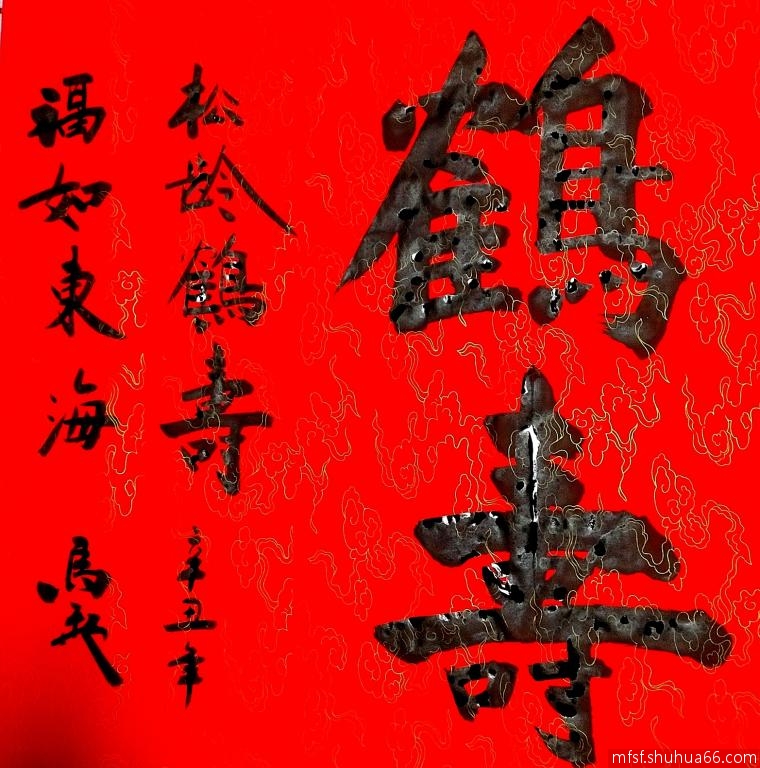 鶴壽
松齡鶴壽 辛丑年
福如東海 馬
mfsf.shuhua66.com